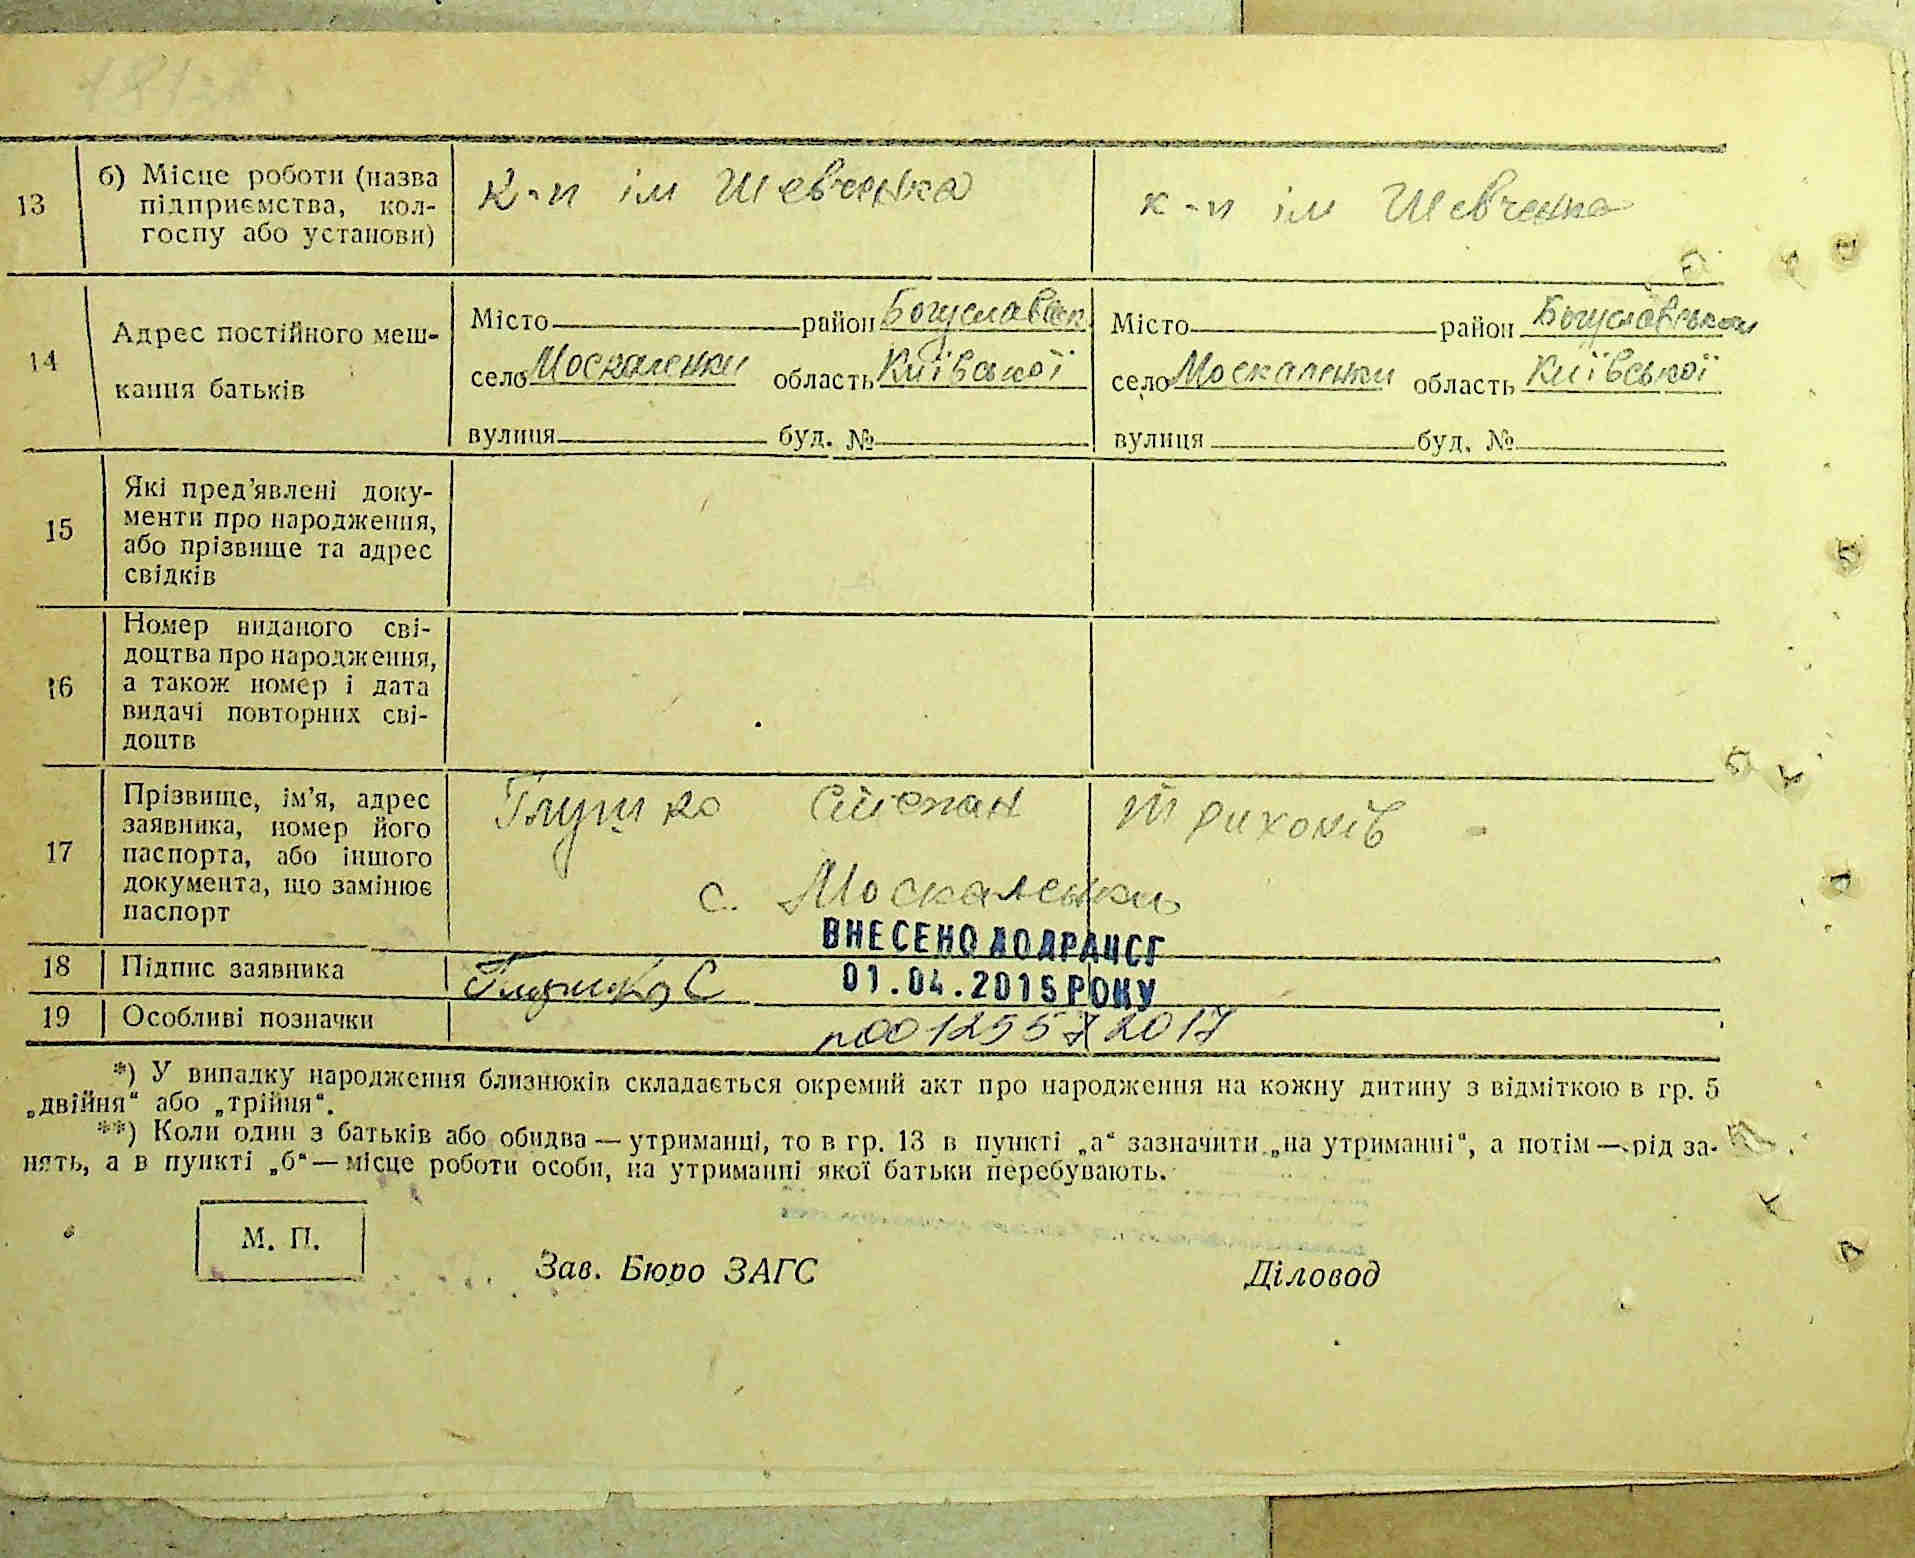 13
б) Місце роботи (назва
підприємства, кол-
госпу або установи)
к-п ім Шевченка
к-п ім Шевченка
14
Адрес постійного меш-
кання батьків
Місто район Богуславськ
село Москаленки область Київської
вулиця буд. №
Місто район Богуславський
село Москаленки область Київської
вулиця буд. №
15
Які пред'явлені доку-
менти про народження,
або прізвище та адрес
свідків
16
Номер виданого сві-
доцтва про народження,
а також номер і дата
видачі повторних сві-
доцтв
17
Прізвище, ім'я, адрес
заявника, номер його
паспорта, або іншого
документа, що замінює
паспорт
Глушко Степан
с. Москаленки
ВНЕСЕНО ДО ДРАЦСГ
01.04.2015 РОКУ
18
Підпис заявника
Глушко С
19
Особливі позначки
*) У випадку народження близнюків складається окремий акт про народження на кожну дитину з відміткою в гр. 5
„двійня“ або „трійня“.
**) Коли один з батьків або обидва — утриманці, то в гр. 13 в пункті „а“ зазначити „на утриманні“, а потім — рід за-
нять, а в пункті „б“ — місце роботи особи, на утриманні якої батьки перебувають.
М. П.
Зав. Бюро ЗАГС
Діловод